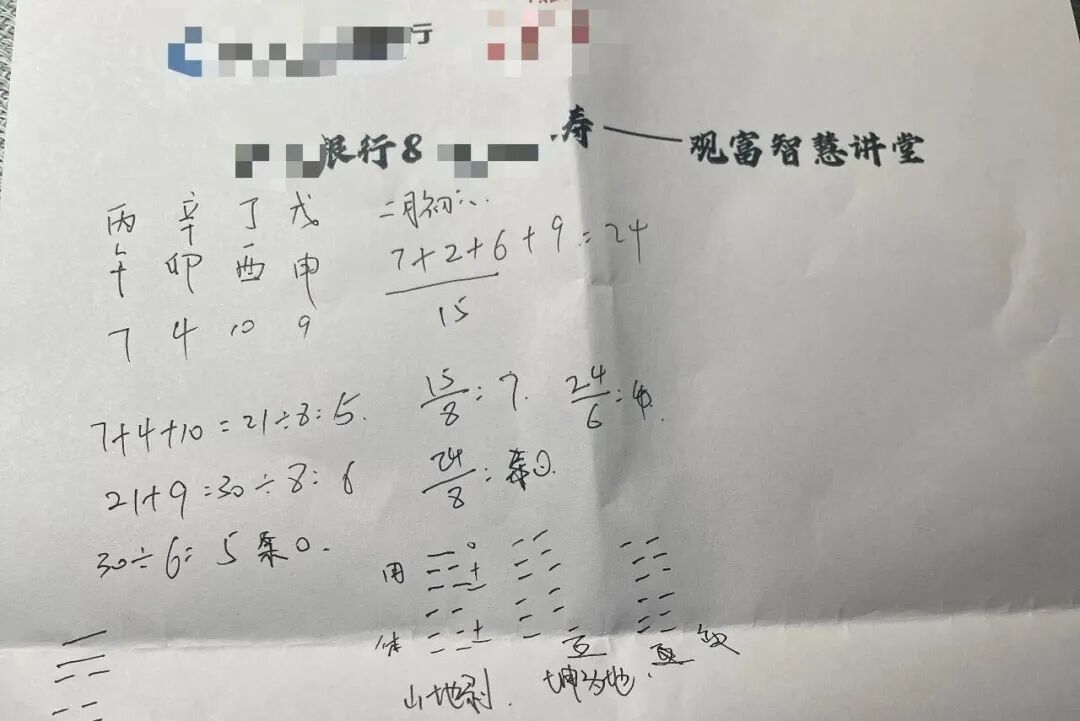 行
银行8 寿——观富智慧讲堂
丙 辛 丁 戊 二月初六
午 卯 酉 申 7+2+6+9=24
7 4 10 9 15
7+4+10=21÷8=5. 15/8=7. 24/6=4.
21+9=30÷8=6 24/8=余0.
30÷6=5余0.
用
体
山地剥. 互 坤为地. 变